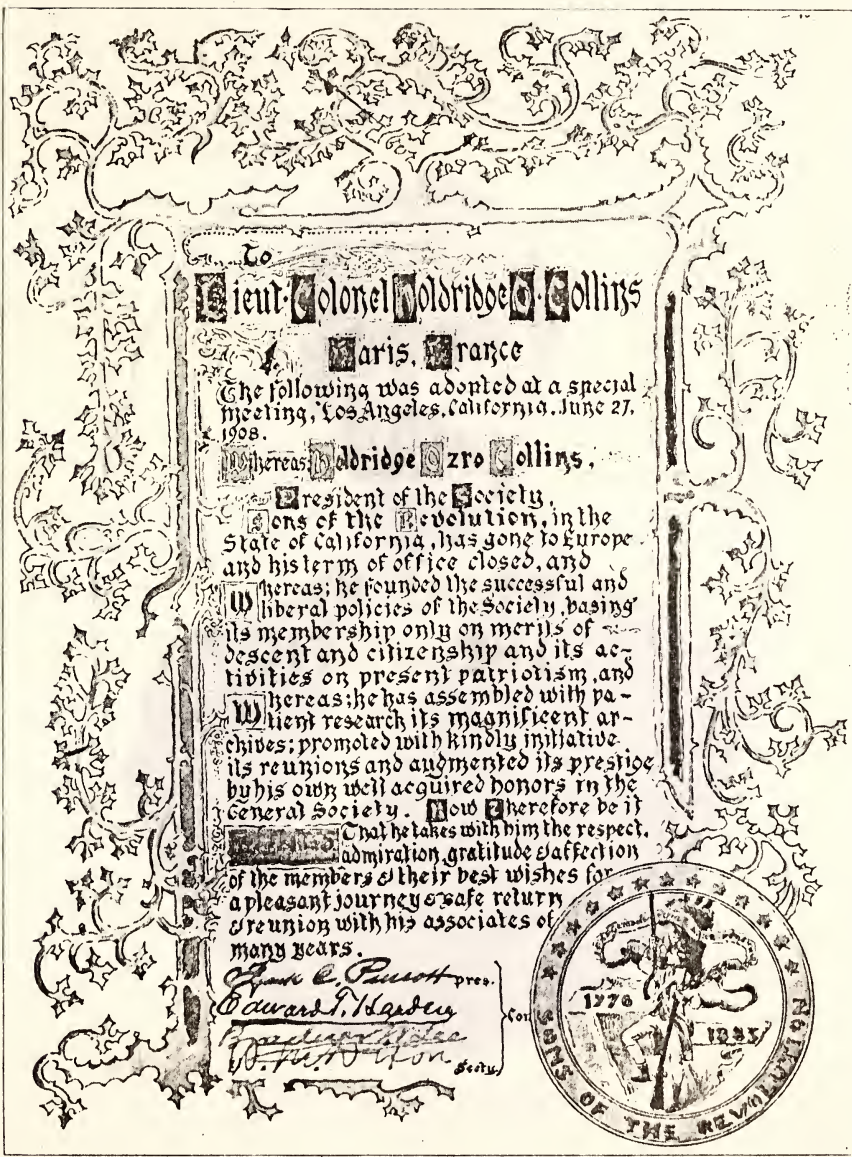 To
Lieut. Colonel Holdridge O. Collins
Paris, France
The following was adopted at a special
meeting, Los Angeles, California, June 27,
1908.
Whereas Holdridge Ozro Collins,
President of the Society,
Sons of the Revolution, in the
State of California, has gone to Europe
and his term of office closed, and
Whereas; he founded the successful and
liberal policies of the Society, basing
its membership only on merits of
descent and citizenship and its ac-
tivities on present patriotism, and
Whereas; he has assembled with pa-
tient research its magnificent ar-
chives; promoted with kindly initiative
its reunions and augmented its prestige
by his own well acquired honors in the
General Society. Now Therefore be it
That he takes with him the respect,
admiration, gratitude & affection
of the members & their best wishes for
a pleasant journey & safe return
& reunion with his associates of
many years.
pres.
Edward T. Harden
Com
Secty.
1776
1883
SONS OF THE REVOLUTION